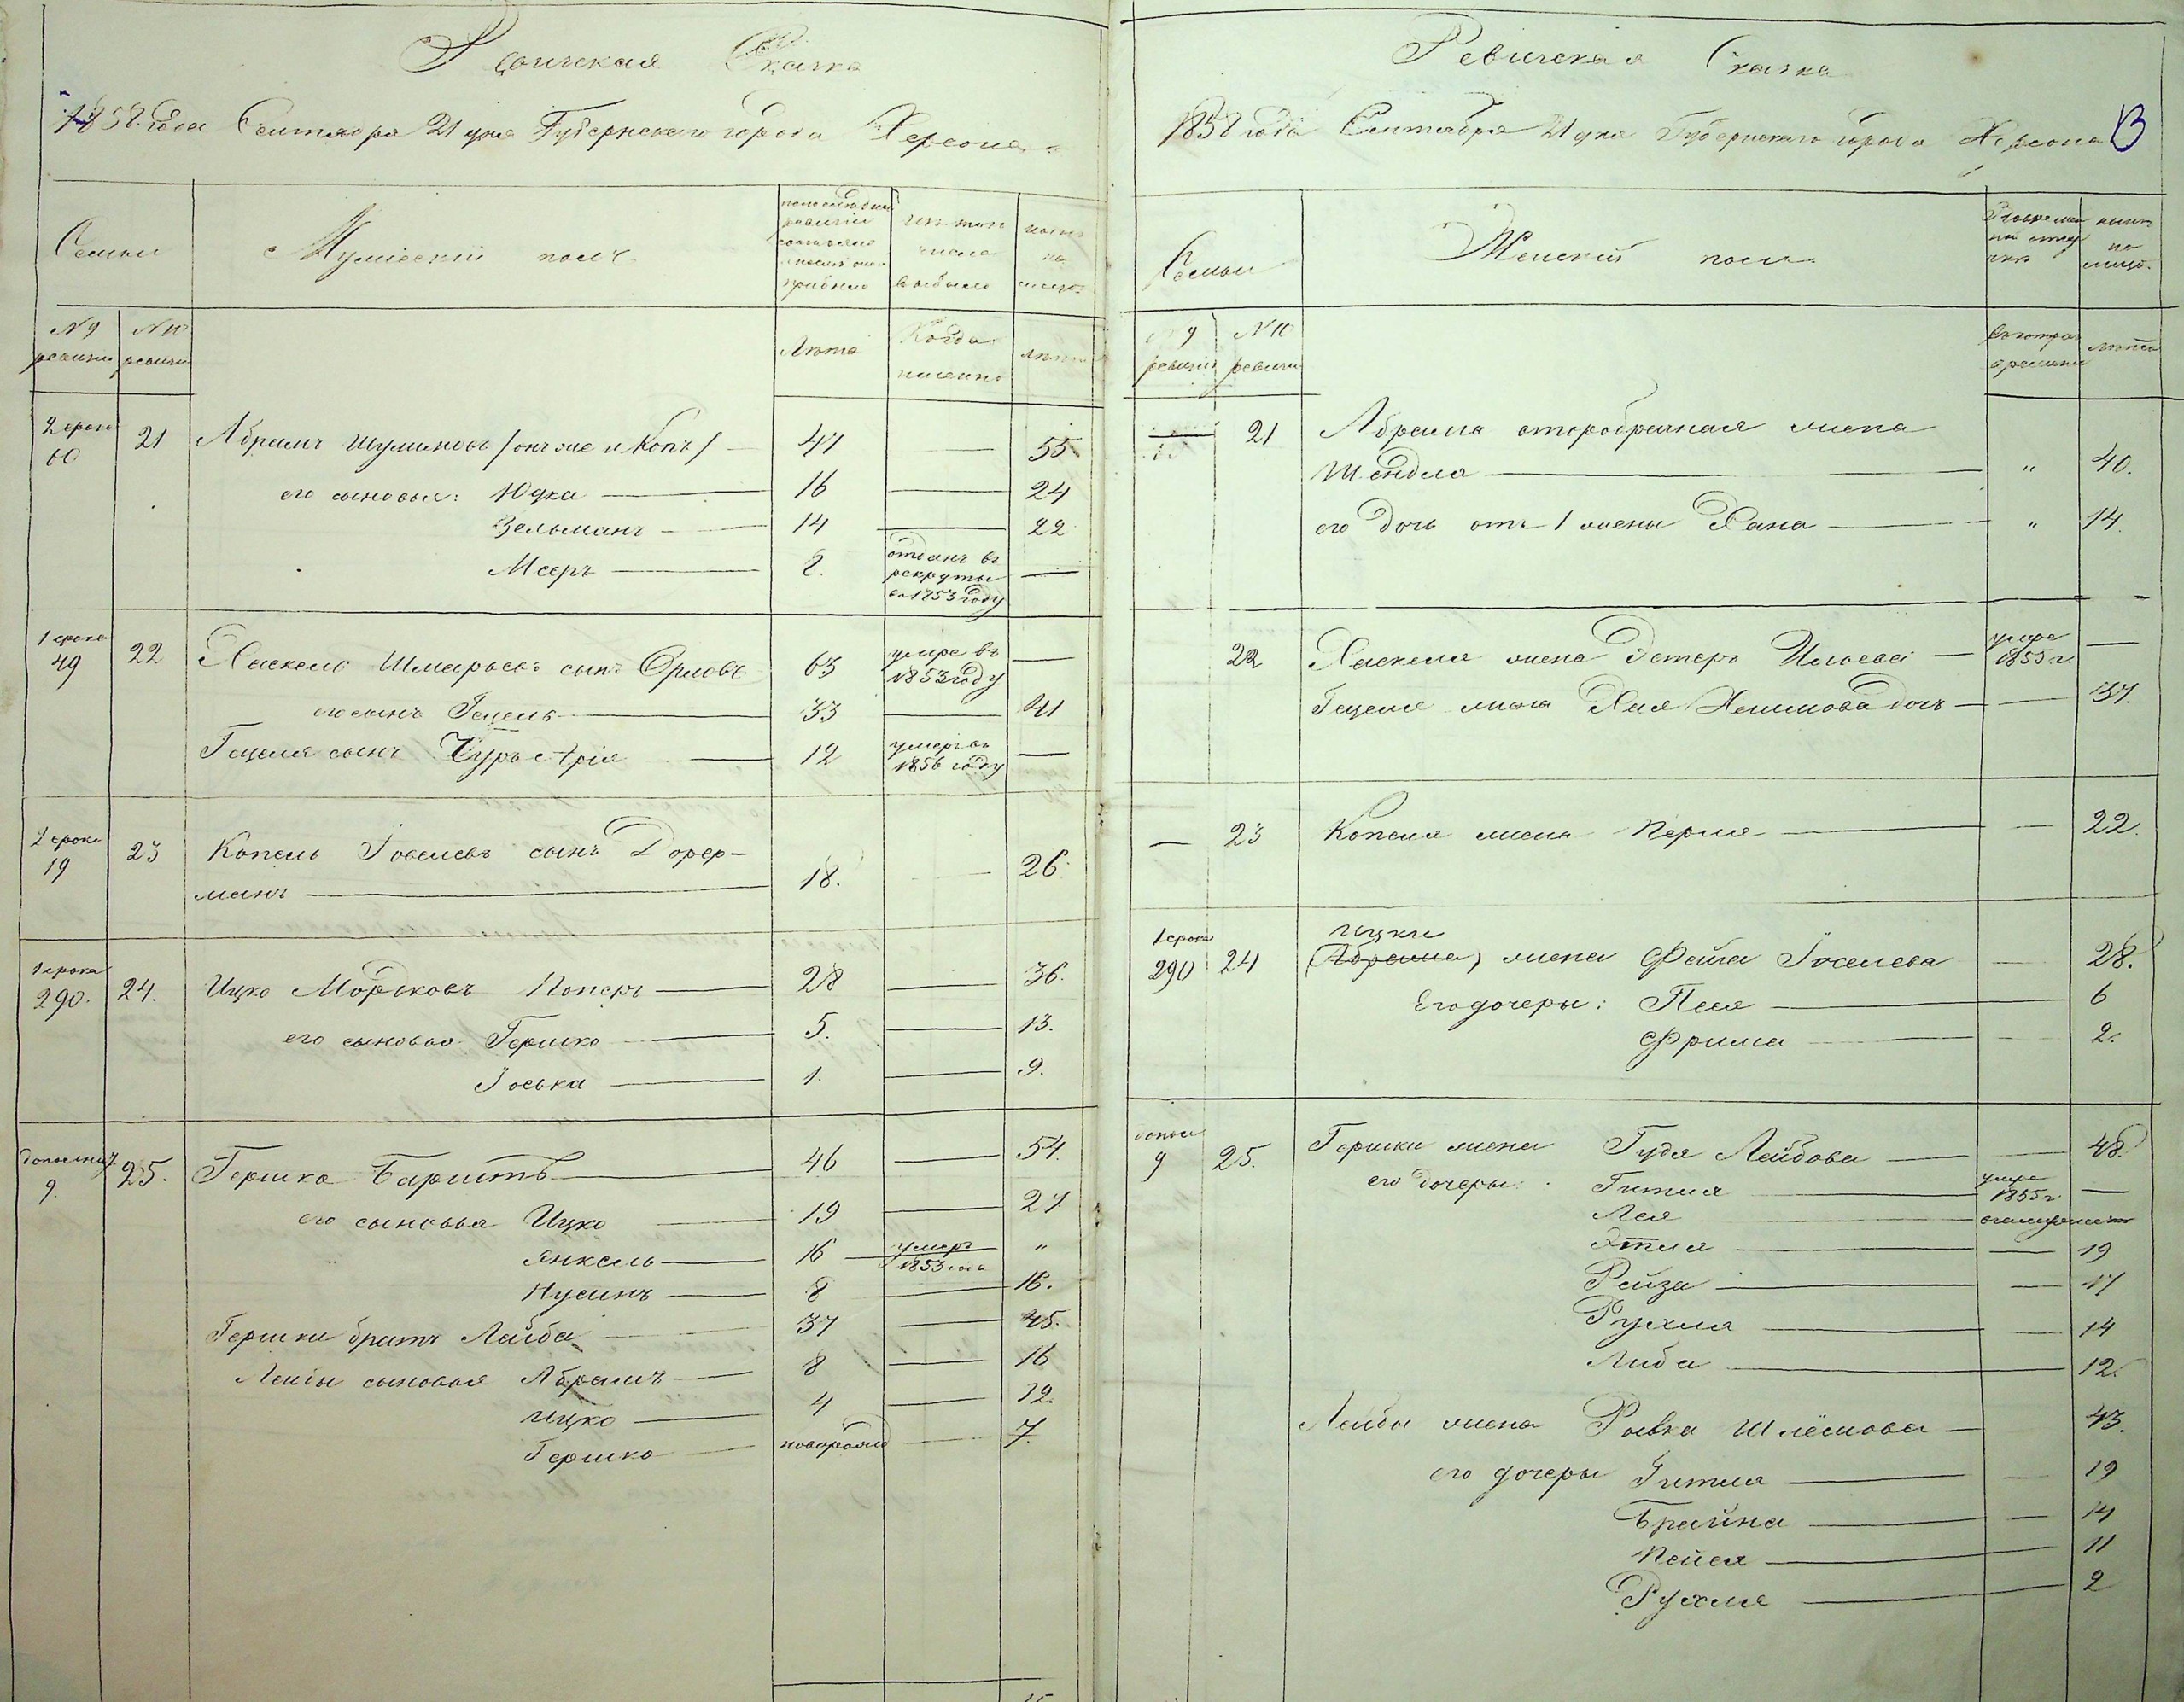 Ревичская Сказка
1858 года Сентября 21 дня Губернскаго города Херсона
Семьи
Мужескій полъ
по последней ревизіи состояло и после оной прибыло
изъ того числа выбыло
ныне на лицо
№ 9 ревизіи
№ 10 ревизіи
Лета
Когда именно
лета
2 срока 60 21 Абрамъ Шулимовъ /онъ же и Копъ/ — 47 — 55
его сыновья: Юдка — 16 — 24
Зельманъ — 14 — 22
Мееръ — 8. отданъ въ рекруты въ 1853 году —
1 срока 49 22 Хаскель Шмарьевъ сынъ Орловъ 63 умре въ 1853 году —
его сынъ Гецель — 33 — 41
Гецеля сынъ Гуръ Арія — 12 умеръ въ 1856 году —
2 срока 19 23 Копель Іоселевъ сынъ Дорер-
манъ — 18. — 26
1 срока 290. 24. Ицко Мордковъ Поперъ — 28 — 36.
его сыновья Гершко — 5. — 13.
Іоська — 1. — 9.
дополнит 9. 25. Гершка Баритъ — 46 — 54.
его сыновья Ицко — 19 — 27
Янкель — 16 — умеръ 1853 года "
Нусинъ — 8 — 16.
Гершки братъ Лейба — 37 — 45.
Лейбы сыновья Абрамъ — 8 — 16
Ицко — 4 — 12.
Гершко — новорожд — 7.
Ревичская Сказка
1858 года Сентября 21 дня Губернскаго города Херсона 13
Семьи
Женскій полъ
Въ временной отлучке
ныне на лицо.
№ 9 ревизіи
№ 10 ревизіи
Съ котораго времени
лета
— 21 Абрама второбрачная жена
Шендля — " 40.
его дочь отъ 1 жены Хана — " 14.
22 Хаскеля жена Эстеръ — умре 1855 г. —
Гецеля жена Хая дочь — — 37.
— 23 Копеля жена Перля — — 22.
Ицки
1 срока 290 24 (Абрама) жена Фейга Іоселева — 28.
Его дочеры: Песя — 6
Фрима — — 2.
дополн 9 25. Гершки жена Гудя Лейбова — — 48.
его дочеры: Гитля — умре 1855 г. —
Лея —
Этля — — 19
Рейза — — 17
Рухля — — 14
Либа — 12.
Лейбы жена Ривка Шлёмова — 43.
его дочеры Гитля — — 19
Брайна — — 14
Пейся — 11
Рухля — 2